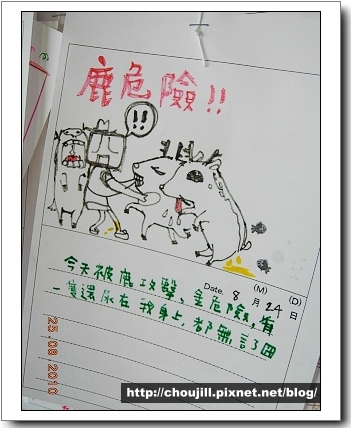 鹿危險!!
!!
(M) (D)
Date. 8 月 24 日
今天被鹿攻擊,危險,有
一隻還尿在我身上,都無言了囧
25.08.2010
http://choujill.pixnet.net/blog/